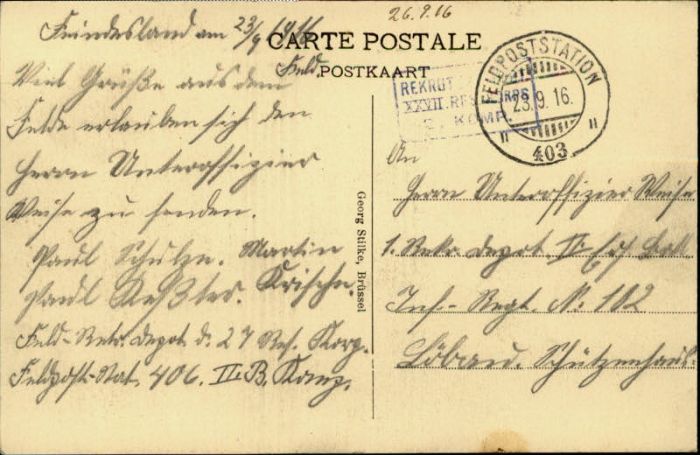 26.9.16
Feindesland am 23/9 1916
CARTE POSTALE
POSTKAART
Viel Grüße aus dem Feld.
Felde erlauben sich den
Herrn Unteroffizier
Weise zu senden.
Paul Schulze. Martin
Paul Krischn.
Feld-Rekr. depot d. 27 Res. Korp.
Feldpost-Stat. 406. II. B. Komp.
Georg Stilke, Brüssel
REKRUT
XXVII. RES. KORPS
KOMP.
FELDPOSTSTATION
23.9.16.
403.
An
Herrn Unteroffizier Weise
1. Rekr. depot. II. Ers. Batl.
Inf-Regt. No 102
Löbau. Schützenhaus.